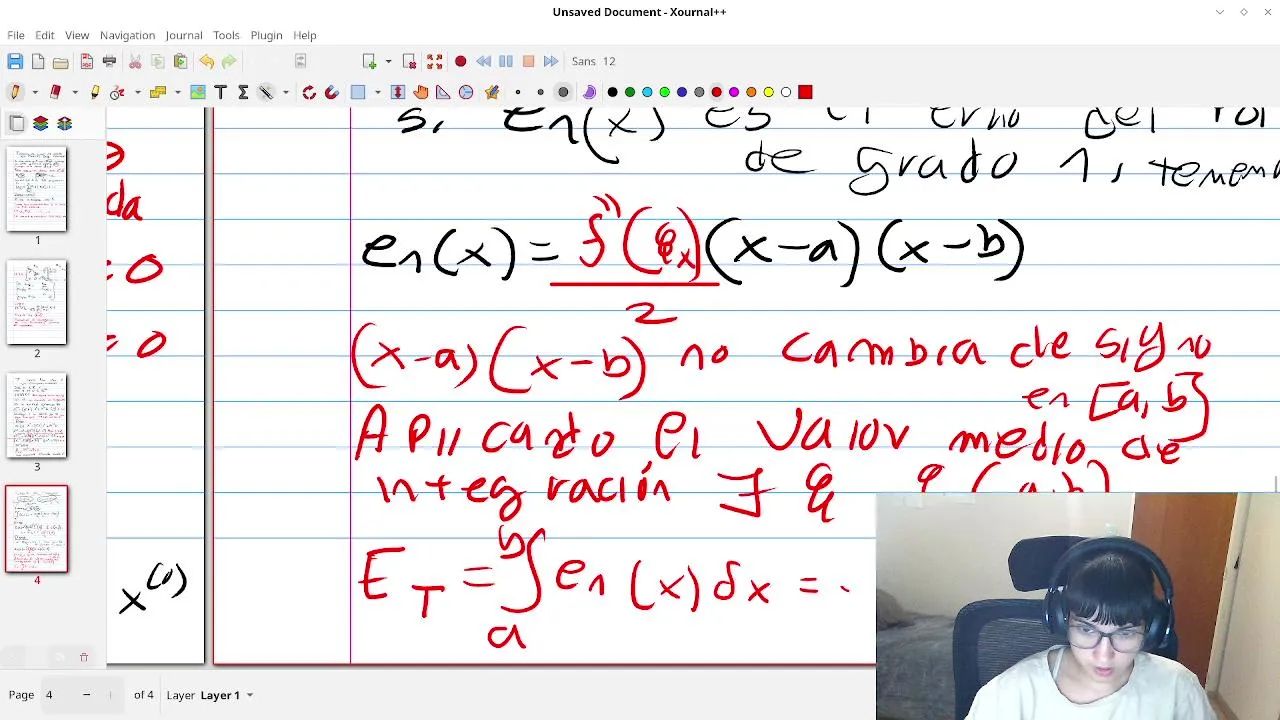 Unsaved Document - Xournal++
File Edit View Navigation Journal Tools Plugin Help
Sans 12
si en(x) es el error del
de grado 1,
en(x) = f''(ξx)/2 (x-a)(x-b)
(x-a)(x-b) no cambia de signo
en [a,b]
Aplicando el valor medio de
integración ∃ ξ (a,b)
E_T = ∫_a^b en(x) dx =
da
= 0
= 0
x^(1)
1
2
3
4
Page 4 of 4 Layer Layer 1